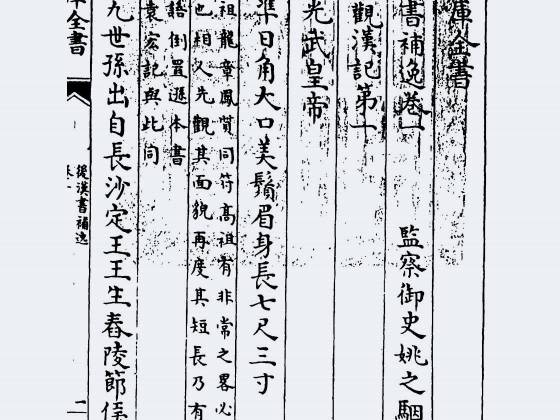 庫全書
書補逸卷一 監察御史姚之駰
觀漢記第一
光武皇帝
準日角大口美鬚眉身長七尺三寸
祖龍章鳳質同符高祖有非常之畧必
也相人先觀其面貌再度其短長乃有
語倒置遜本書
袁宏記與此同
九世孫出自長沙定王王生舂陵節侯
庫全書
後漢書補逸
卷一
二